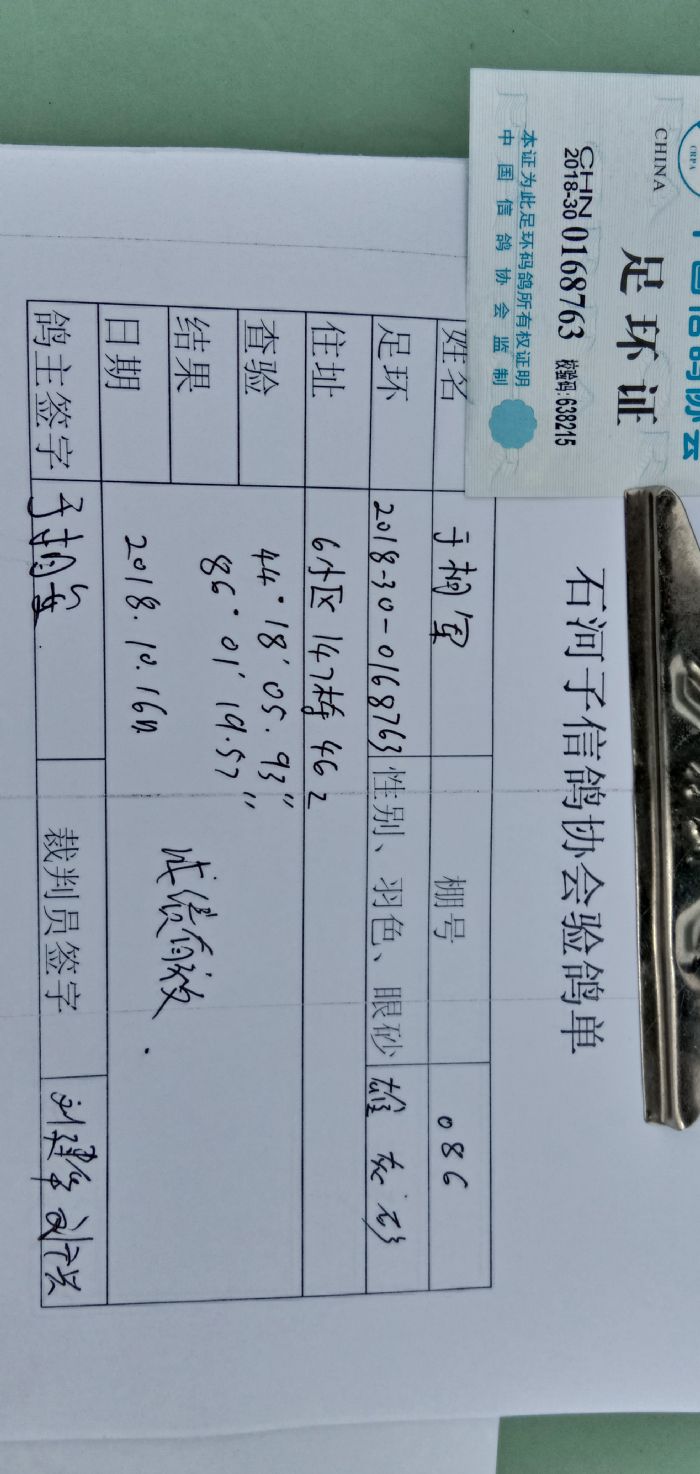 CRPA
中国信鸽协会
CHINA
足环证
CHN
2018-30 0168763 校验码:638215
本证为此足环码鸽所有权证明
中国信鸽协会监制
石河子信鸽协会验鸽单
姓名 于相军 棚号 086
足环 2018-30-0168763 性别、羽色、眼砂 雄 灰 砂
住址 6小区 147栋 462
查验 44°18′05.93″
结果 86°01′19.57″
成绩有效.
日期 2018.10.16日
鸽主签字 于相军 裁判员签字